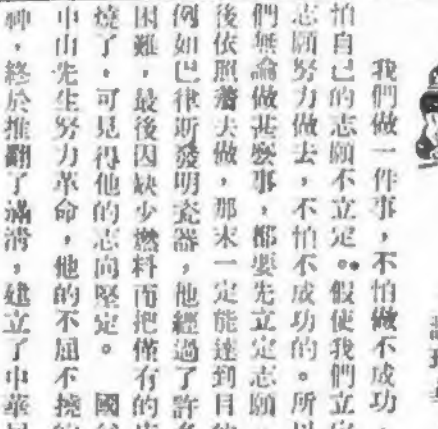 我們做一件事，不怕做不成功，
怕自己的志願不立定。假使我們立定
志願努力做去，不怕不成功的。所以
們無論做甚麼事，都要先立定志願，
後依照着去做，那末一定能達到目的
例如巴律斯發明瓷器，他經過了許多
困難，最後因缺少燃料而把僅有的
燒了，可見得他的志向堅定。國
中山先生努力革命，他的不屈不撓的
神，終於推翻了滿清，建立了中華民